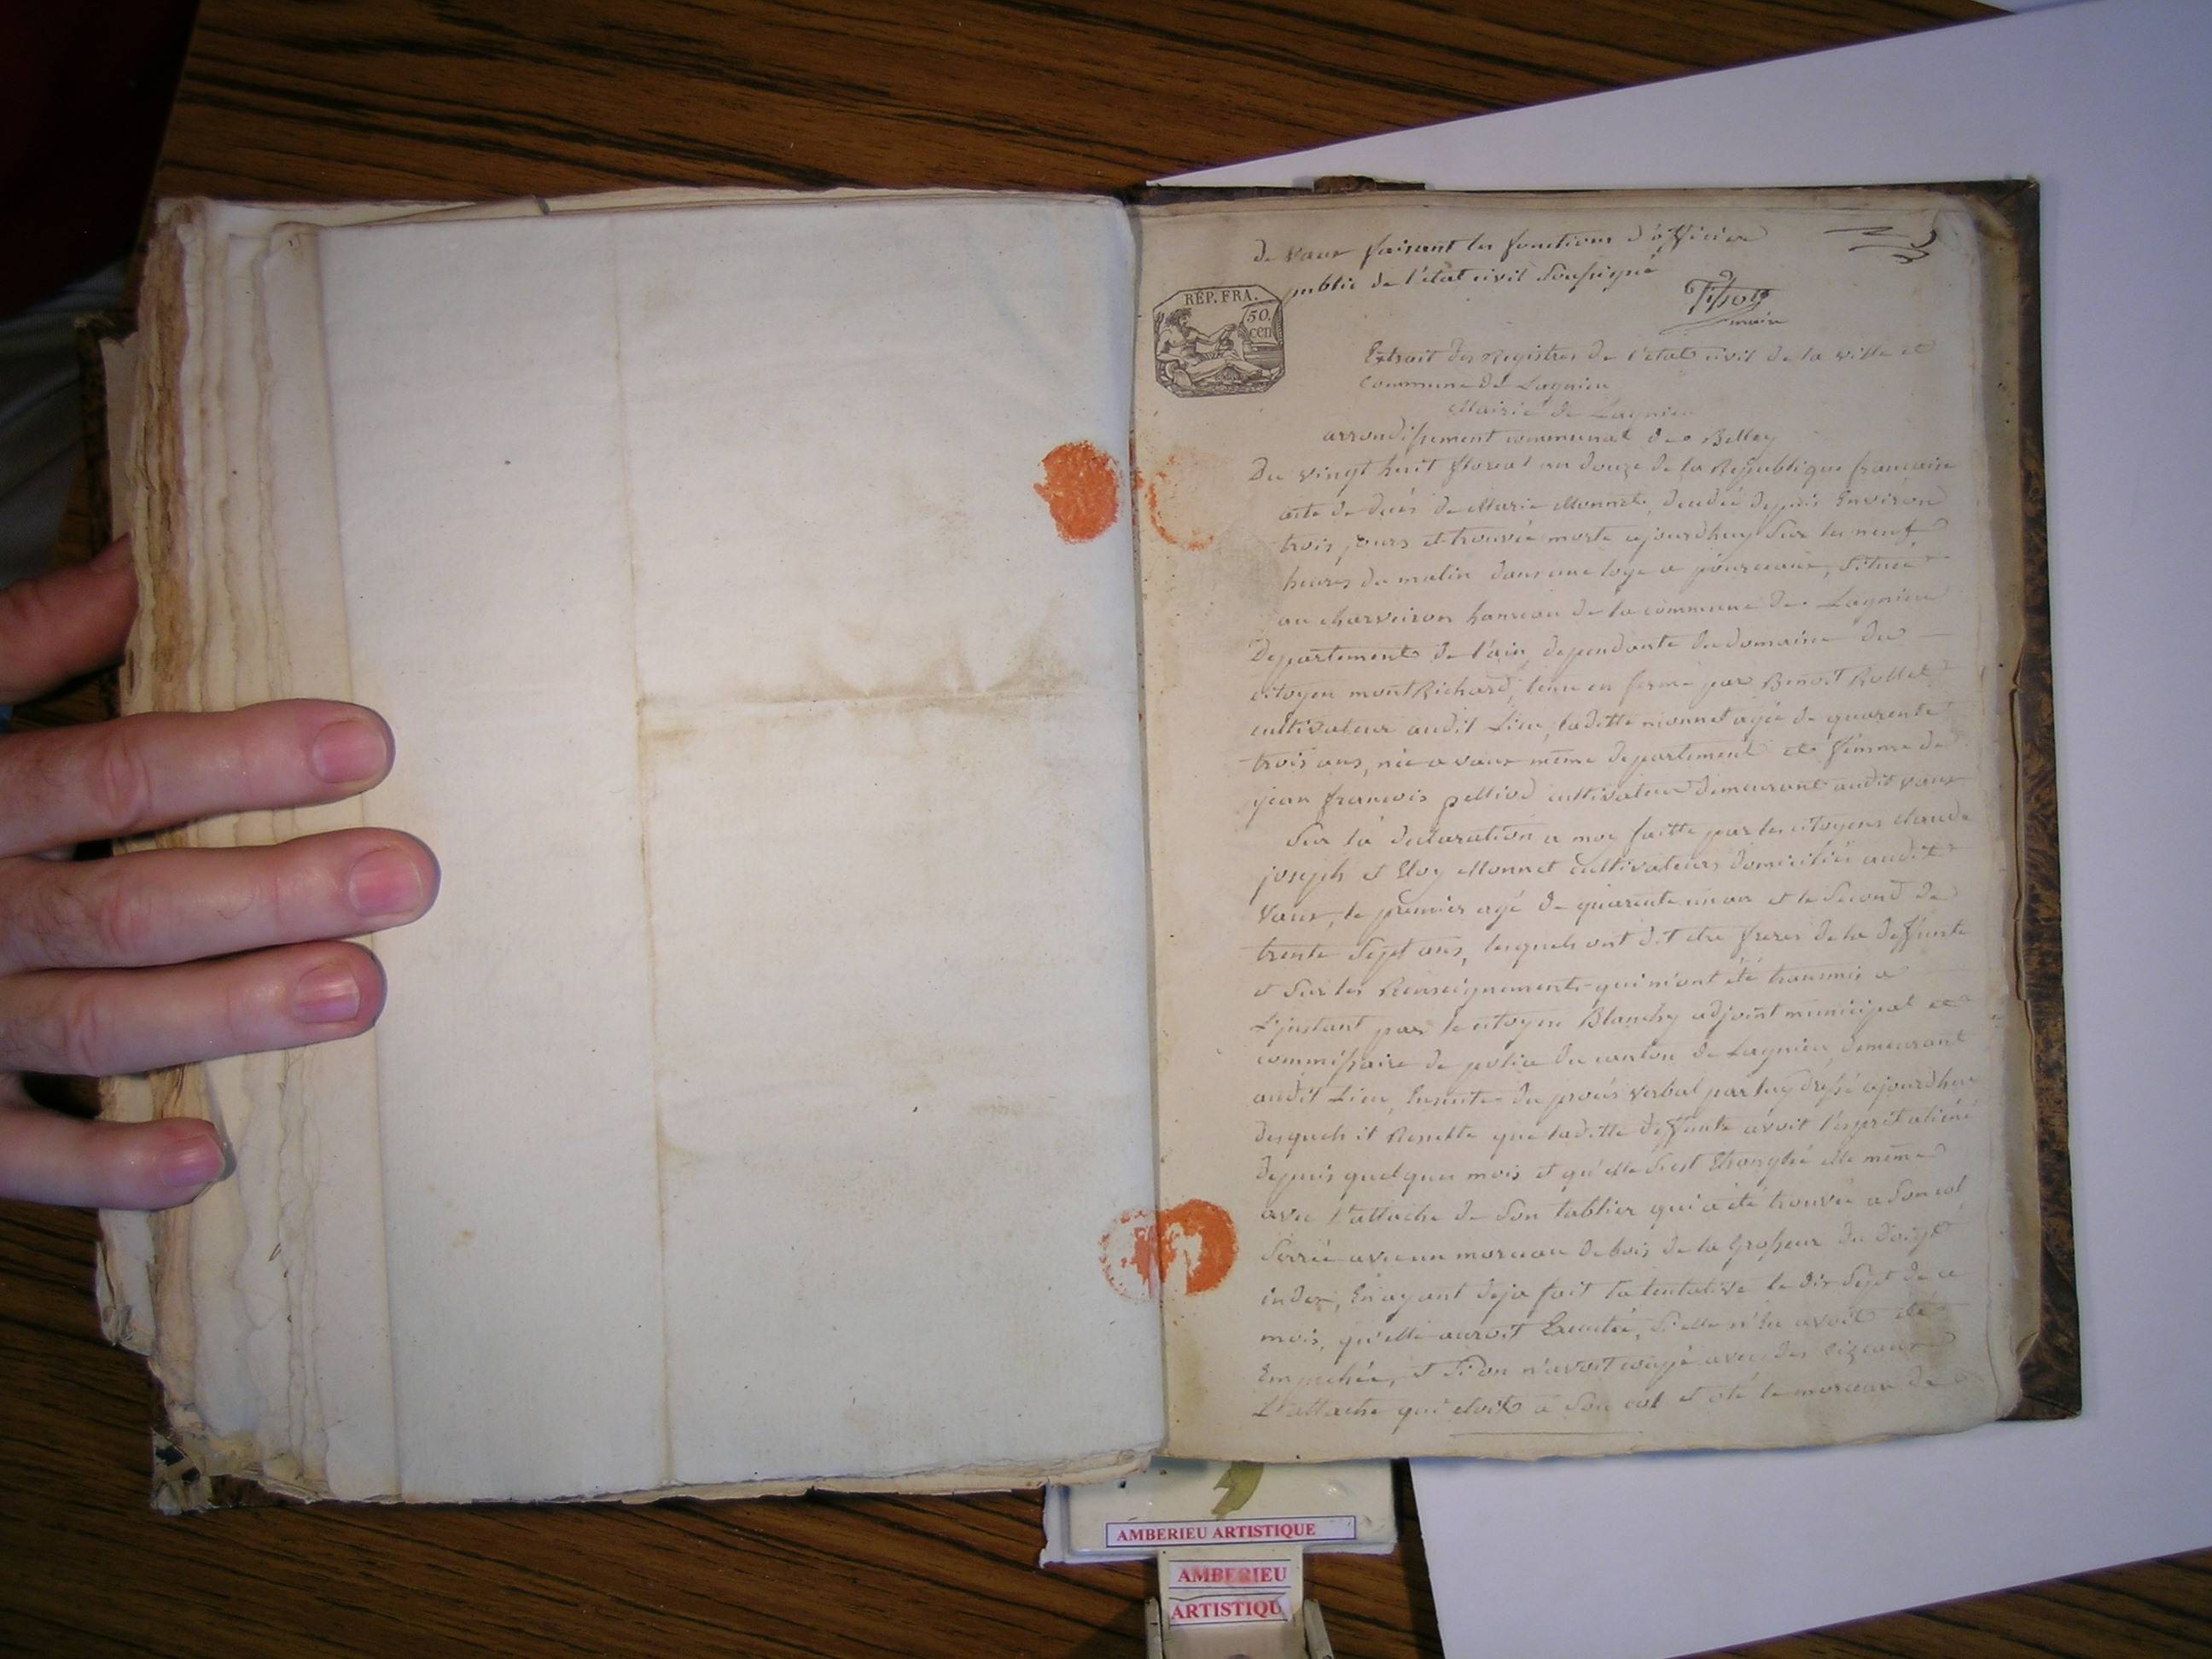 de vaux faisant les fonctions d'officier
public de l'état civil soussigné
Tissot
maire
REP. FRA.
50.
cen
Extrait des Registres de l'etat civil de la ville et
Commune de Lagnieu
Mairie de Lagnieu
arrondissement communal de Belley
Du vingt huit floreal an douze de la Republique francaise
acte de decés de Marie Monnet, decedée depuis Environ
trois jours et trouvée morte ajourdhuy sur les neuf
heures du matin dans une loge a pourceaux, située
au charveiron hameau de la commune de Lagnieu
Departement de l'ain, dependante du domaine du
citoyen montRichard, tenu en ferme par Benoit Rollet
cultivateur audit Lieu, laditte monnet agée de quarente
trois ans, née a vaux même departement et femme de
jean francois cultivateur demeurant audit vaux
Sur la declaration a moi faitte par les citoyens claude
joseph et Eloy Monnet cultivateurs domiciliés audit
Vaux, le premier agé de quarente un an et le second de
trente sept ans, lesquels ont dit etre freres de la deffunte
et sur les Renseignements qui m'ont été transmis a
L'instant par le citoyen Blanchy adjoint municipal et
commissaire de police du canton de Lagnieu, demeurant
audit Lieu, Ensuite du procés verbal par luy dressé ajourdhuy
desquels il Resulte que laditte deffunte avoit l'esprit aliéné
depuis quelques mois et qu'elle s'est Etranglée elle même
avec l'attache de son tablier qui a été trouvée a son col
serrée avec un morceau de bois de la grosseur du doigt
index, En ayant deja fait la tentative le dix sept de ce
mois, qu'elle auroit Executée, si elle n'En avoit été
Empechée, et si on n'avoit coupé avec des cizeaux
L'attache qui etoit a son col et oté le morceau de
AMBERIEU ARTISTIQUE
AMBERIEU
ARTISTIQU